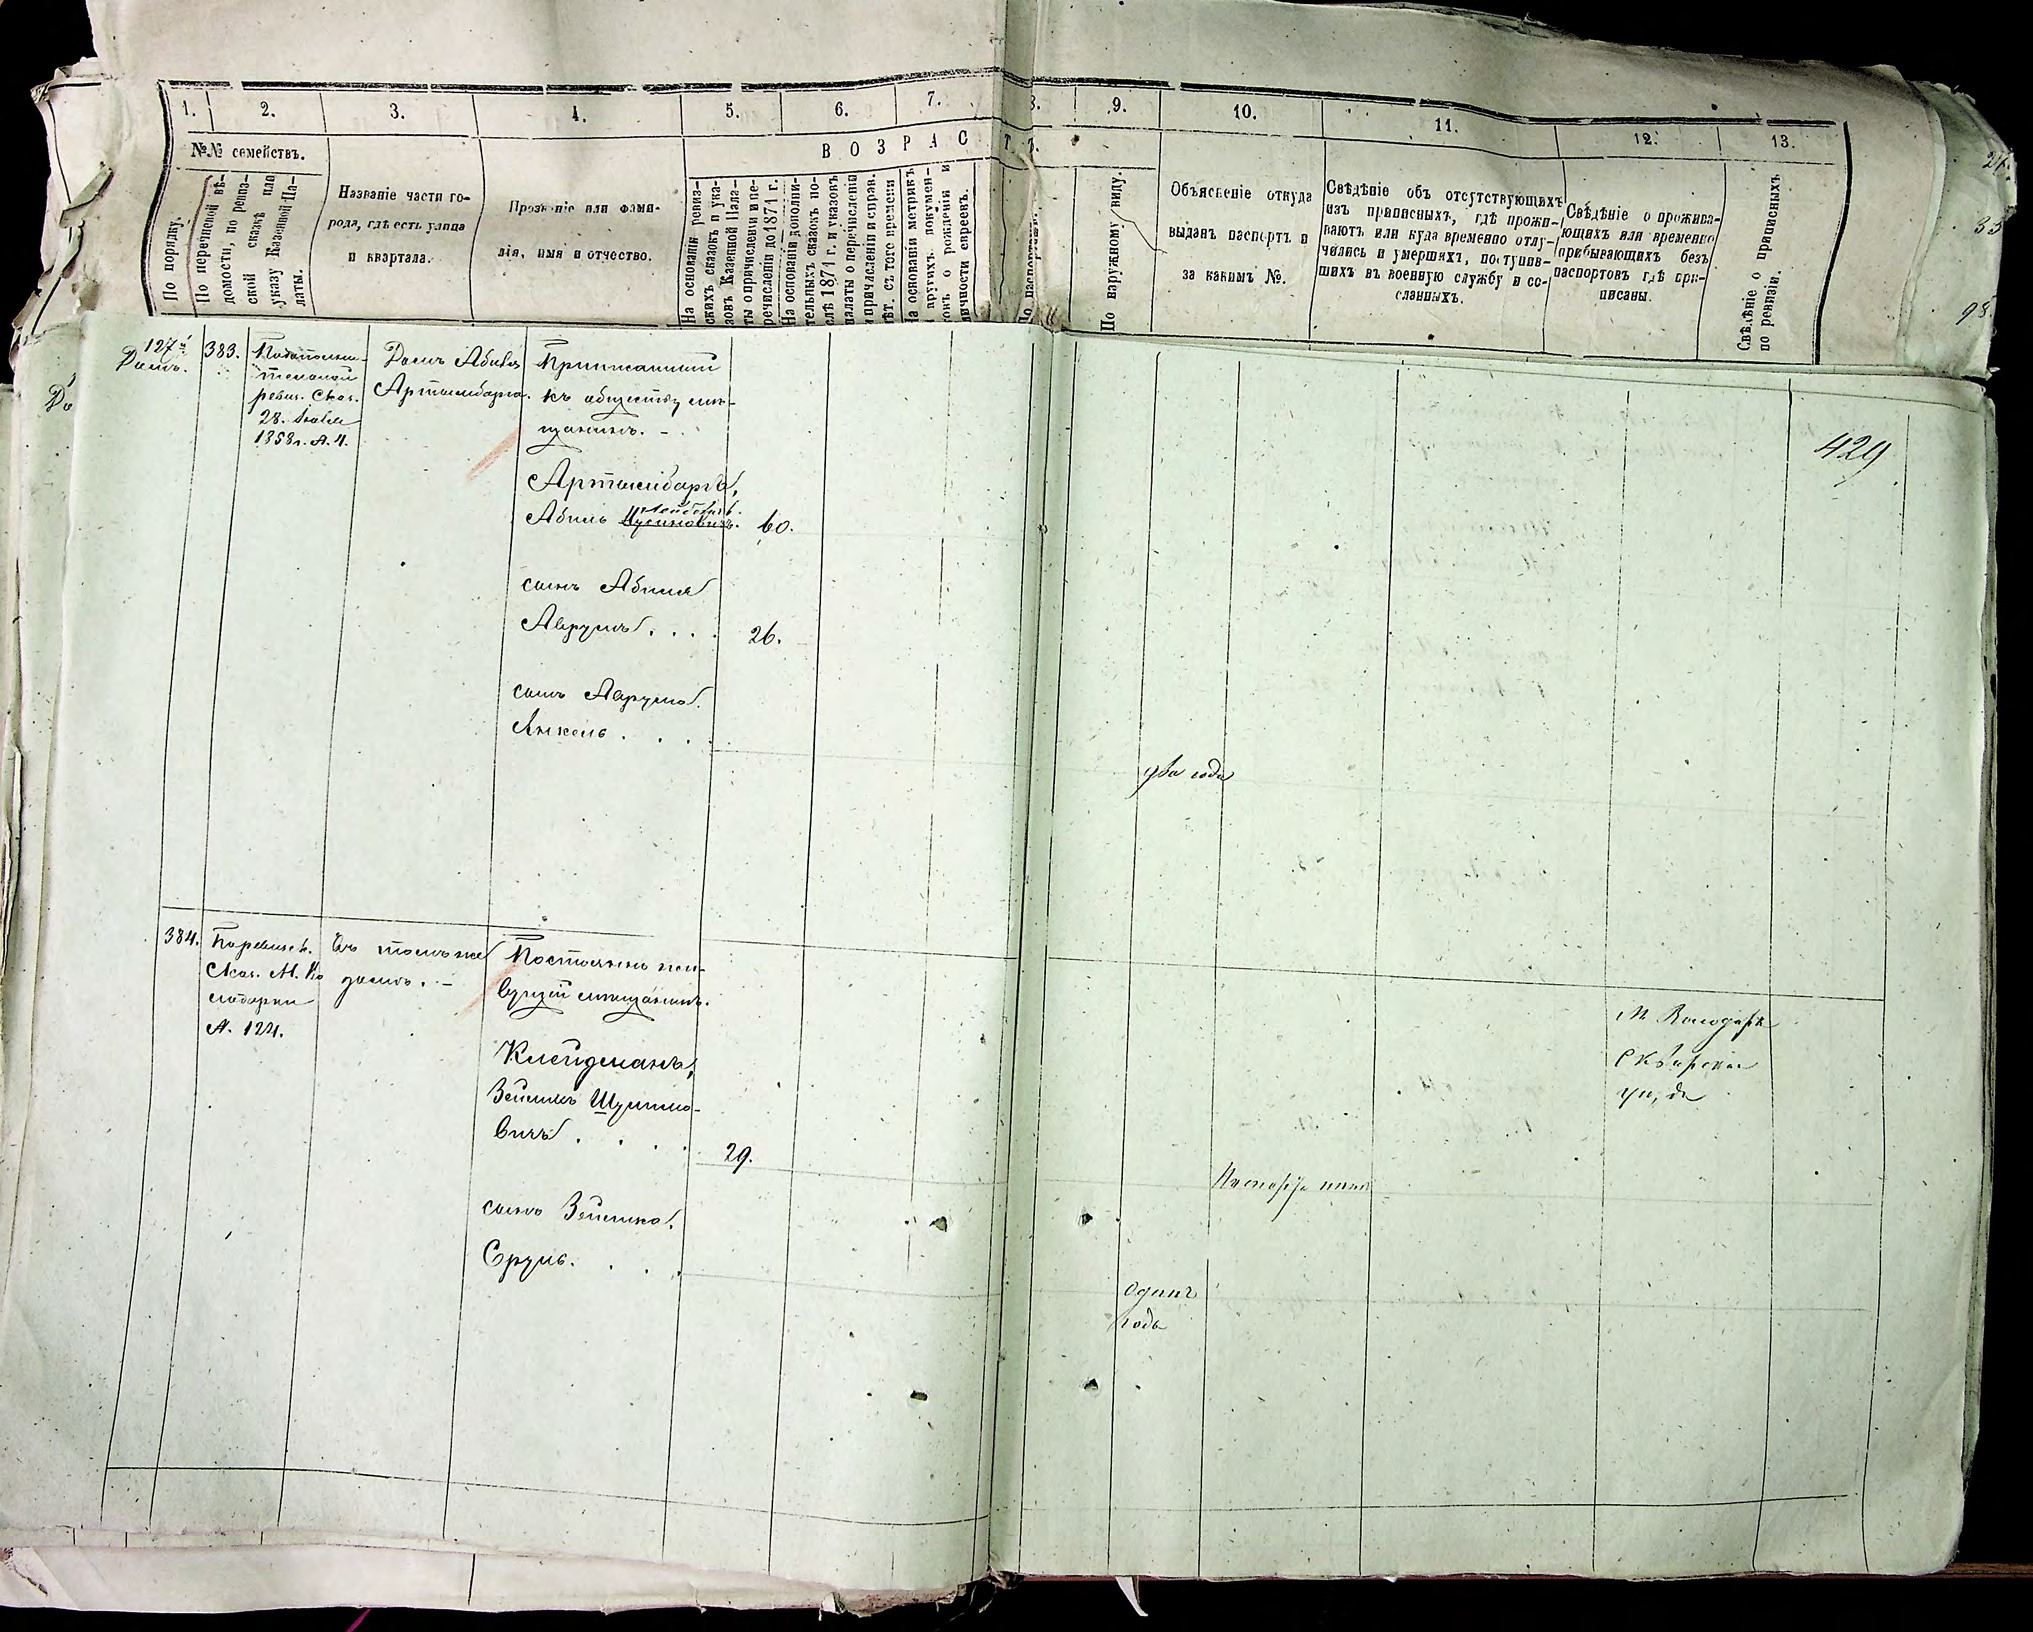 1. 2. 3. 4. 5. 6. 7. 8. 9. 10. 11. 12. 13.
№№ семействъ.
ВОЗРАСТЪ.
По порядку.
По перечневой вѣ-
домости, по ревиз-
ской сказкѣ или
указу Казенной Па-
латы.
Названіе части го-
рода, гдѣ есть улица
и квартала.
Прозваніе или фами-
лія, имя и отчество.
На основаніи ревиз-
скихъ сказокъ и ука-
зовъ Казенной Пала-
ты о причисленіи и пе-
речисленіи до 1874 г.
На основаніи дополни-
тельныхъ сказокъ по-
слѣ 1874 г. и указовъ
палаты о перечисленіи
и причисленіи и справ.
лѣт. съ того времени
На основаніи метрикъ
и другихъ докумен-
товъ о рожденіи и
личности евреевъ.
По паспортамъ.
По наружному виду.
Объясненіе откуда
выданъ паспортъ и
за какимъ №.
Свѣдѣніе объ отсутствующихъ
изъ приписныхъ, гдѣ прожи-
ваютъ или куда временно отлу-
чились и умершихъ, поступив-
шихъ въ военную службу и со-
сланныхъ.
Свѣдѣніе о прожива-
ющихъ или временно
прибывающихъ безъ
паспортовъ гдѣ при-
писаны.
Свѣдѣніе о приписныхъ
по ревизіи.
127й
Домъ.
383.
По дополни-
тельной
ревиз. Сказ.
28.
1858 г. №. 4.
Домъ Абиля
Артымбарга.
Приписанный
къ обществу мѣ-
щанинъ. –
Артымбаргъ,
Лейбовичъ.
Абиль 60.
сынъ Абиля
Аврумъ . . . . 26.
сынъ Аврума
Янкель . . . .
два года
429
384.
По ревизск.
Сказ. М. Во
лодарки
№. 124.
Въ томъ же
домѣ. –
Постоянно жи-
вущій мѣщанинъ.
Клейдманъ,
Зейликъ Шулимо-
вичъ . . . . 29.
сынъ Зейлика
Сруль. . . .
М Володарк
Сквирскаго
уѣзда
Паспорта нѣтъ
одинъ
годъ